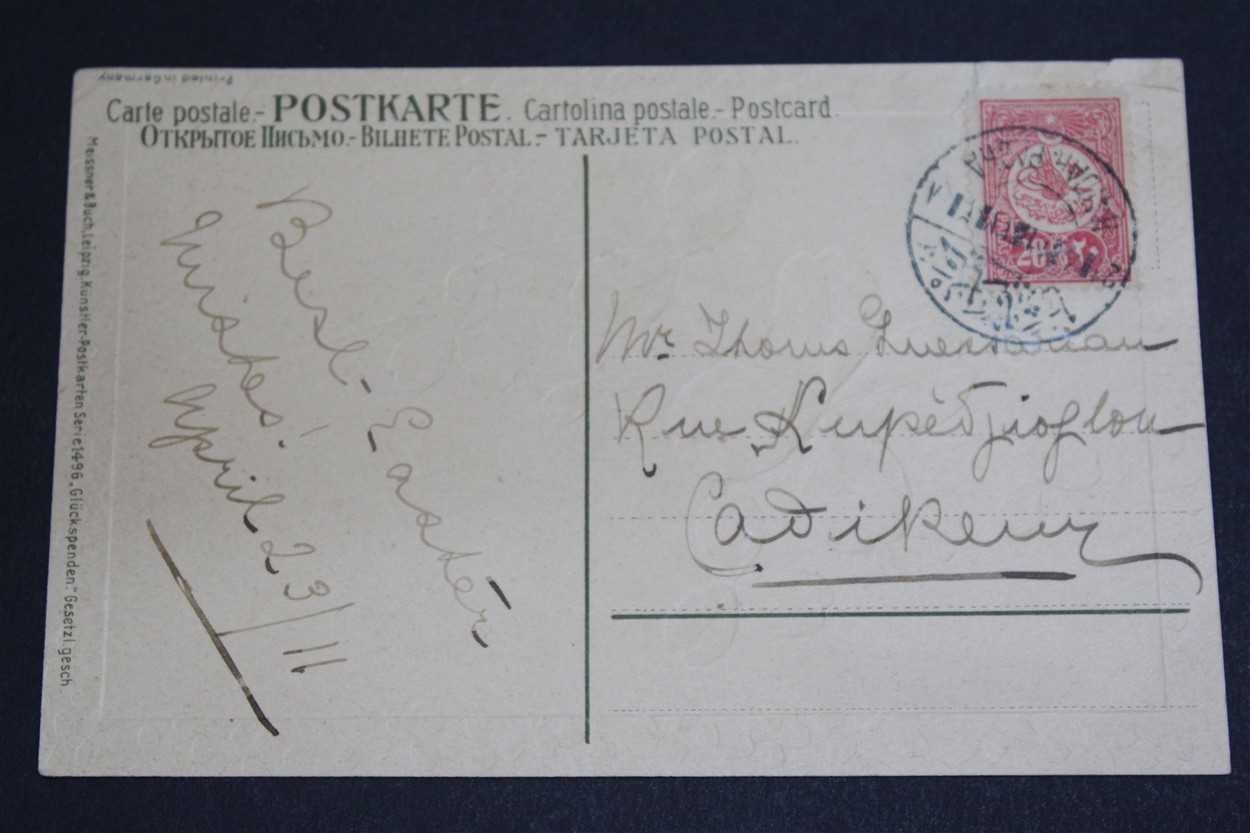 Printed in Germany
Carte postale.- POSTKARTE. Cartolina postale.- Postcard.
ОТКРЫТОЕ ПИСЬМО.- BILHETE POSTAL.- TARJETA POSTAL.
Meissner & Buch, Leipzig. Künstler-Postkarten Serie 1496 „Glückspenden." Gesetzl. gesch.
Best Easter
Wishes!
April 23/11
20 ٢٠
Mr. Thomas
Rue Kupédjioglou
Cadikeuy